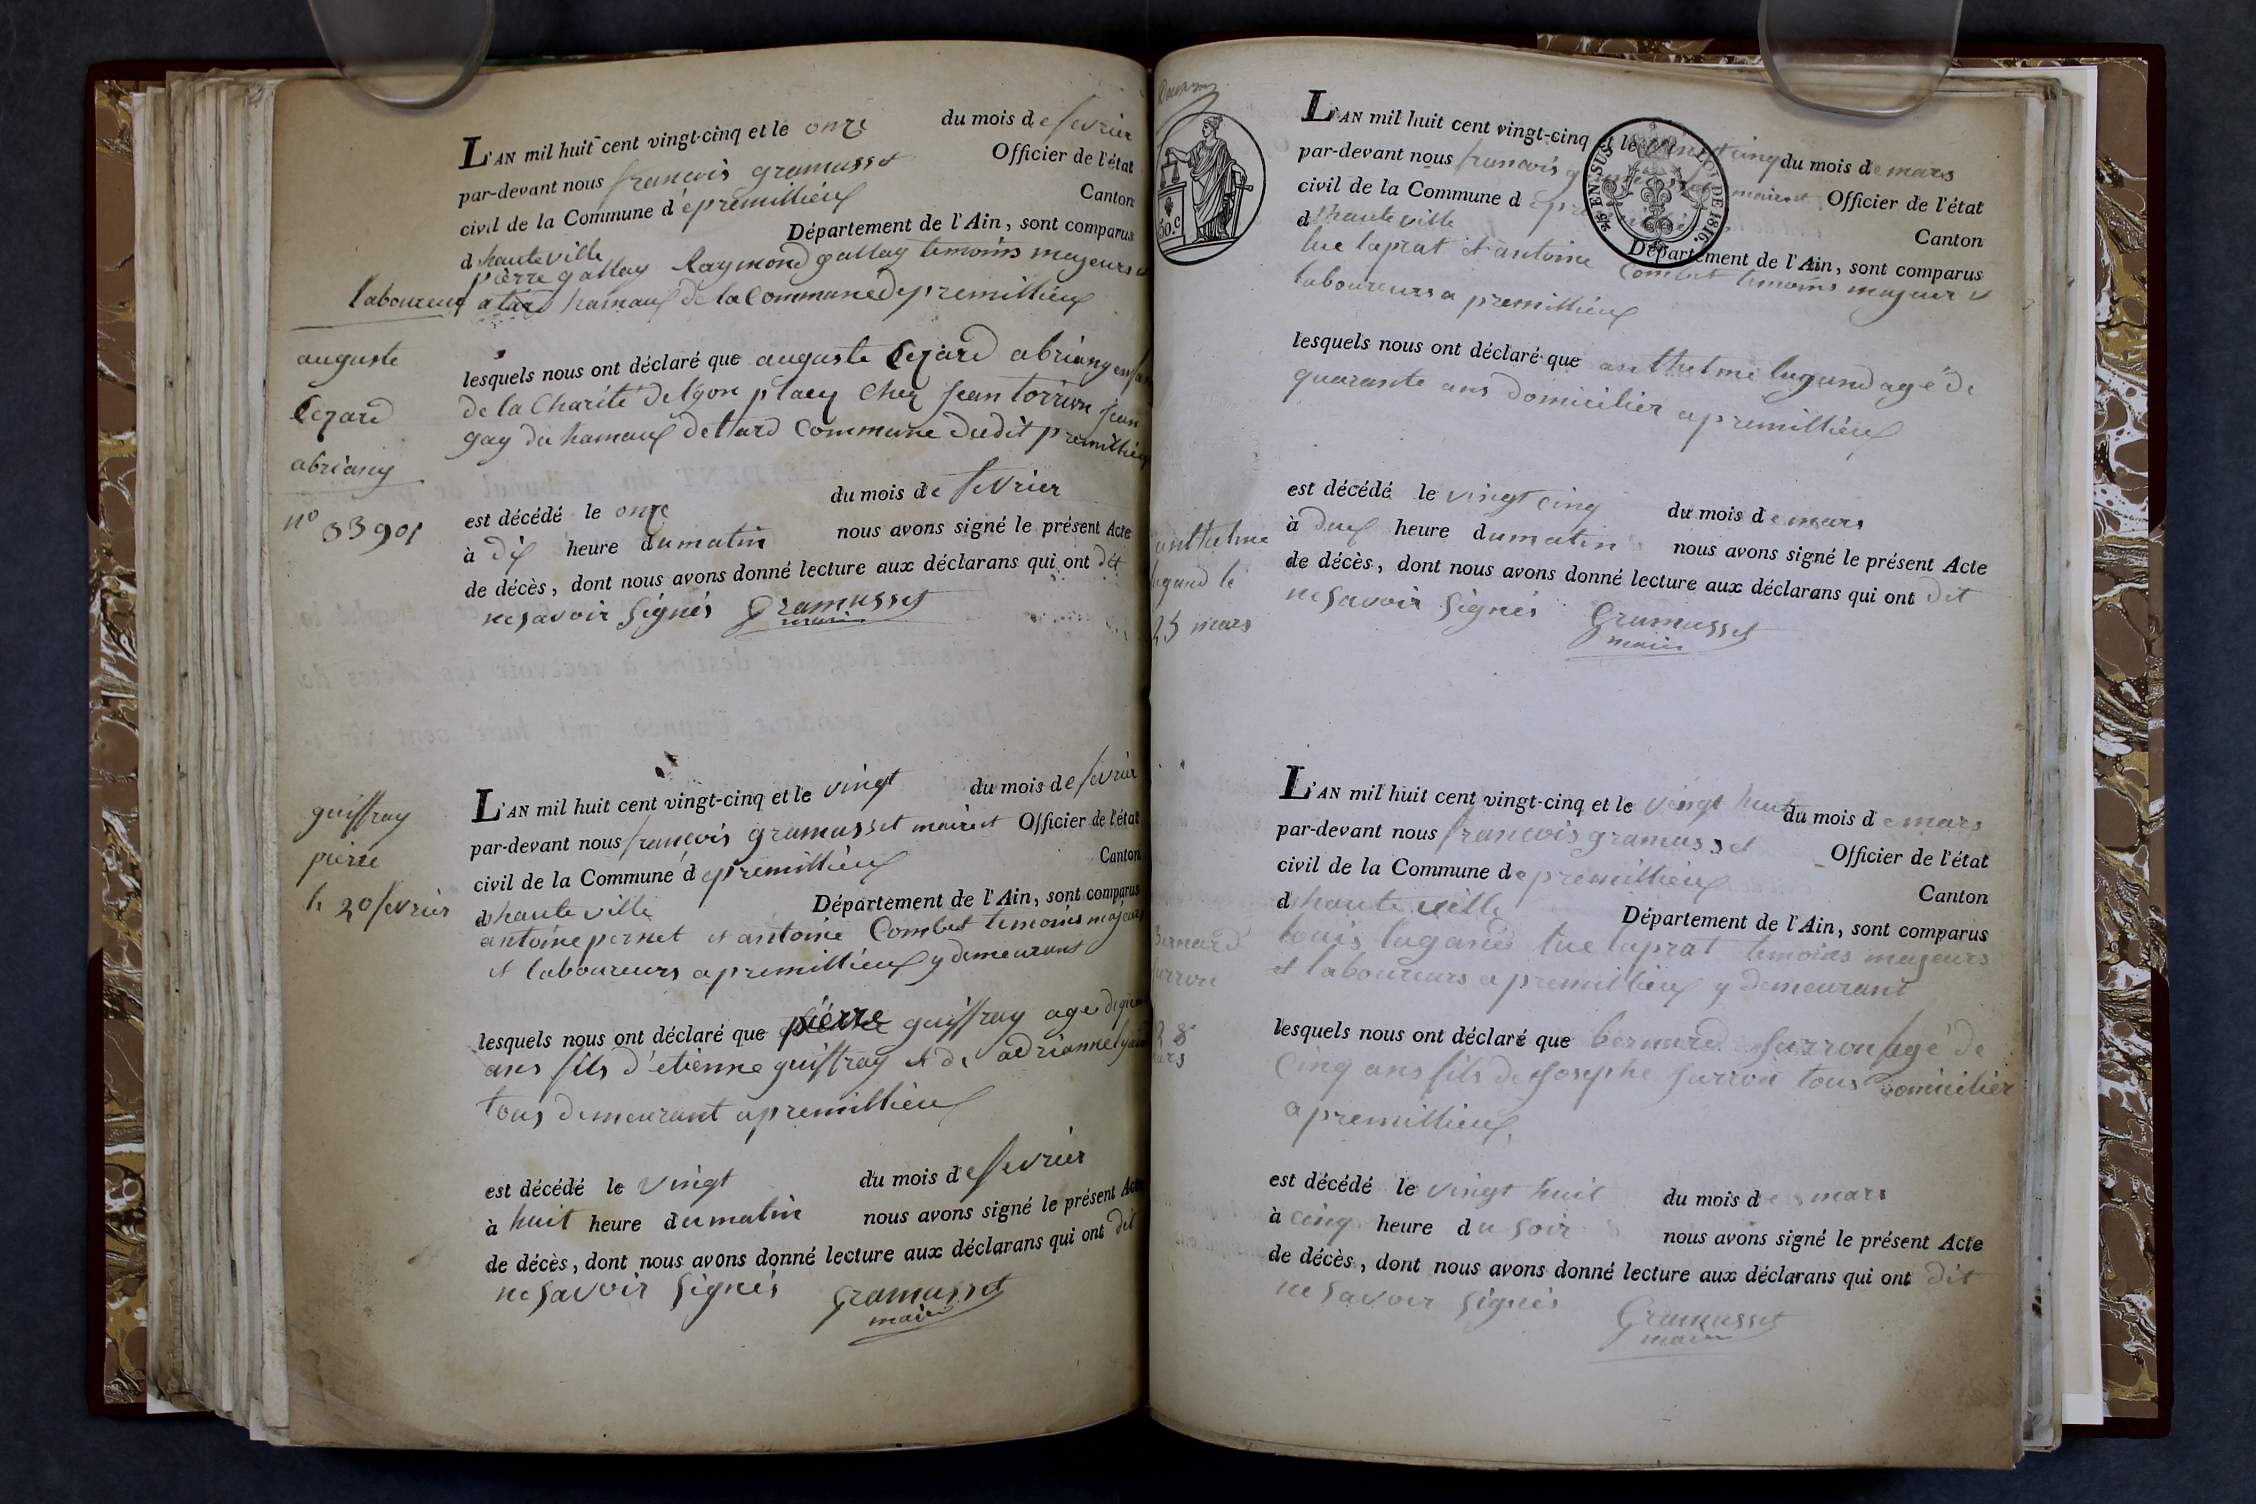 L'AN mil huit cent vingt-cinq et le onze du mois de fevrier
par-devant nous francois gramusset Officier de l'état
civil de la Commune d'épremillieux Canton
d hauteville Département de l'Ain, sont comparus
pierre gallay Raymond gallay temoins majeurs et
laboureurs a tard hamaux de la Commune depremillieux
auguste
Cezard
abriany
n° 33901
lesquels nous ont déclaré que auguste Cezard abriany enfan
de la Charité de lyon placez chez jean torrion jean
gay du hamaux de tard Commune dudit premillieux
est décédé le onze du mois de fevrier
à dix heure dumatin nous avons signé le présent Acte
de décès, dont nous avons donné lecture aux déclarans qui ont dit
ne savoir signés Gramusset
maire
guiffray
pierre
le 20 fevrier
L'AN mil huit cent vingt-cinq et le vingt du mois de fevrier
par-devant nous francois gramusset maire et Officier de l'état
civil de la Commune d epremillieux Canton
d hauteville Département de l'Ain, sont comparus
antoine pernet et antoine Combet temoins majeurs
et laboureurs a premillieux y demeurans
lesquels nous ont déclaré que pierre guiffray age de
ans fils d'etienne guiffray et de adrianne
tous demeurant a premillieux
est décédé le vingt du mois de fevrier
à huit heure dumatin nous avons signé le présent Acte
de décès, dont nous avons donné lecture aux déclarans qui ont dit
ne savoir signés Gramusset
maire
50.C
EN SUS LOI DE 1816.
L'AN mil huit cent vingt-cinq et le vingt cinq du mois de mars
par-devant nous francois gramusset maire et Officier de l'état
civil de la Commune d epremillieux Canton
d hauteville Département de l'Ain, sont comparus
luc laprat et antoine Combet temoins majeur et
laboureurs a premillieux
lesquels nous ont déclaré que anthelme lugand agé de
quarante ans domicilier a premillieux
anthelme
lugand le
25 mars
est décédé le vingt cinq du mois de mars
à deux heure dumatin nous avons signé le présent Acte
de décès, dont nous avons donné lecture aux déclarans qui ont dit
ne savoir signés Gramusset
maire
L'AN mil huit cent vingt-cinq et le vingt huit du mois de mars
par-devant nous francois gramusset Officier de l'état
civil de la Commune de premillieux Canton
d hauteville Département de l'Ain, sont comparus
louis lugand luc laprat temoins majeurs
et laboureurs a premillieux y demeurant
Bernard
furron
28
mars
lesquels nous ont déclaré que bernard furron agé de
cinq ans fils de josephe furron tous domicilier
a premillieux
est décédé le vingt huit du mois de mars
à cinq heure du soir nous avons signé le présent Acte
de décès, dont nous avons donné lecture aux déclarans qui ont dit
ne savoir signés Gramusset
maire